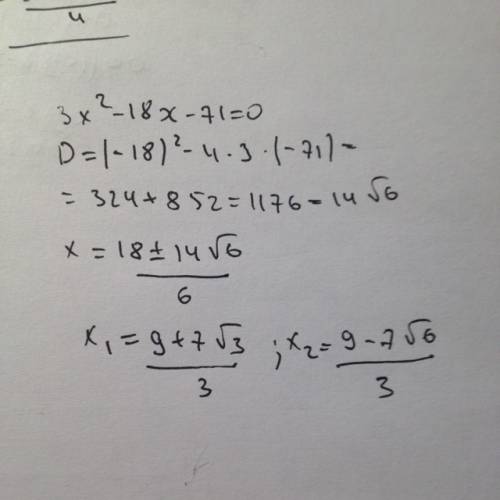 4
3x²-18x-71=0
D=(-18)²-4·3·(-71)=
=324+852=1176=14√6
x=18±14√6
6
x₁=9+7√3 ; x₂=9-7√6
3 3